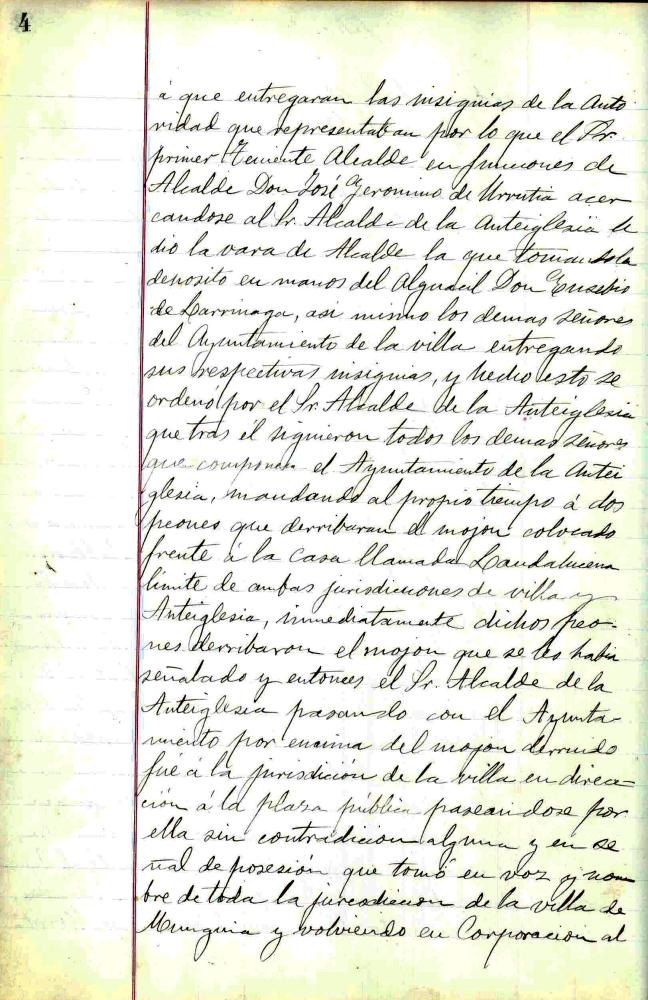 4
á que entregaran las insignias de la Auto
ridad que representaban por lo que el Sr.
primer Teniente Alcalde en funciones de
Alcalde Don José Geronimo de Urrutia acer
candose al Sr. Alcalde de la Anteiglesia le
dio la vara de Alcalde la que tomandola
deposito en manos del Alguacil Don Eusebio
de Larrinaga, asi mismo los demas señores
del Ayuntamiento de la villa entregando
sus respectivas insignias, y hecho esto se
ordenó por el Sr. Alcalde de la Anteiglesia
que tras él siguieron todos los demas señores
que componen el Ayuntamiento de la Antei
glesia, mandando al propio tiempo á dos
peones que derribaran el mojon colocado
frente á la casa llamada Landalucena
limite de ambas jurisdiciones de villa y
Anteiglesia, inmediatamente dichos peo-
nes derribaron el mojon que se les habia
señalado y entonces el Sr. Alcalde de la
Anteiglesia pasando con el Ayunta-
miento por encima del mojon derruido
fué á la jurisdición de la villa en direc-
ción á la plaza pública paseandose por
ella sin contradicion alguna y en se
ñal de posesión que tomó en voz y nom
bre de toda la jurisdicion de la villa de
Munguia y volviendo en Corporacion al